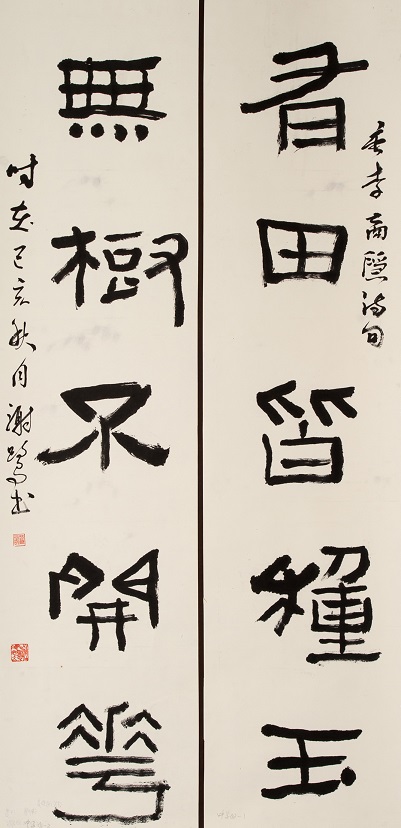 李商隱詩句
有田皆種玉
無樹不開花
時在己亥秋月謝書